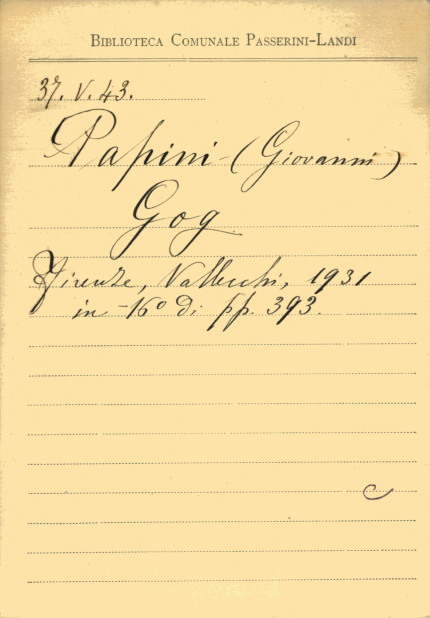 BIBLIOTECA COMUNALE PASSERINI-LANDI
3Y. V. 43.
Papini (Giovanni)
Gog
Firenze, Vallecchi, 1931
in-16° di pp. 393.
C